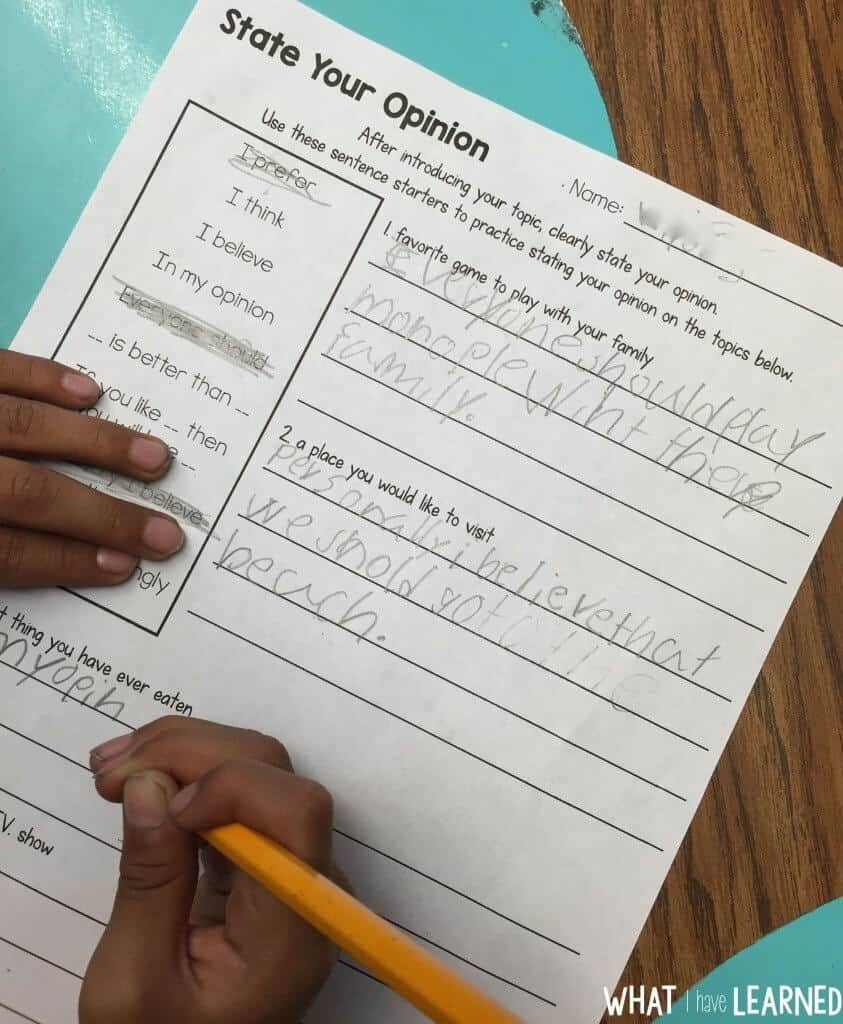 State Your Opinion
Name:
After introducing your topic, clearly state your opinion.
Use these sentence starters to practice stating your opinion on the topics below.
I prefer
I think
I believe
In my opinion
Everyone should
-- is better than --
If you like -- then
you will --
I believe
ngly
1. favorite game to play with your family
Everyone should play
monople Wiht there
family.
2. a place you would like to visit
personally i believe that
we shold go to the
beach.
t thing you have ever eaten
my opin
T.V. show
WHAT I have LEARNED